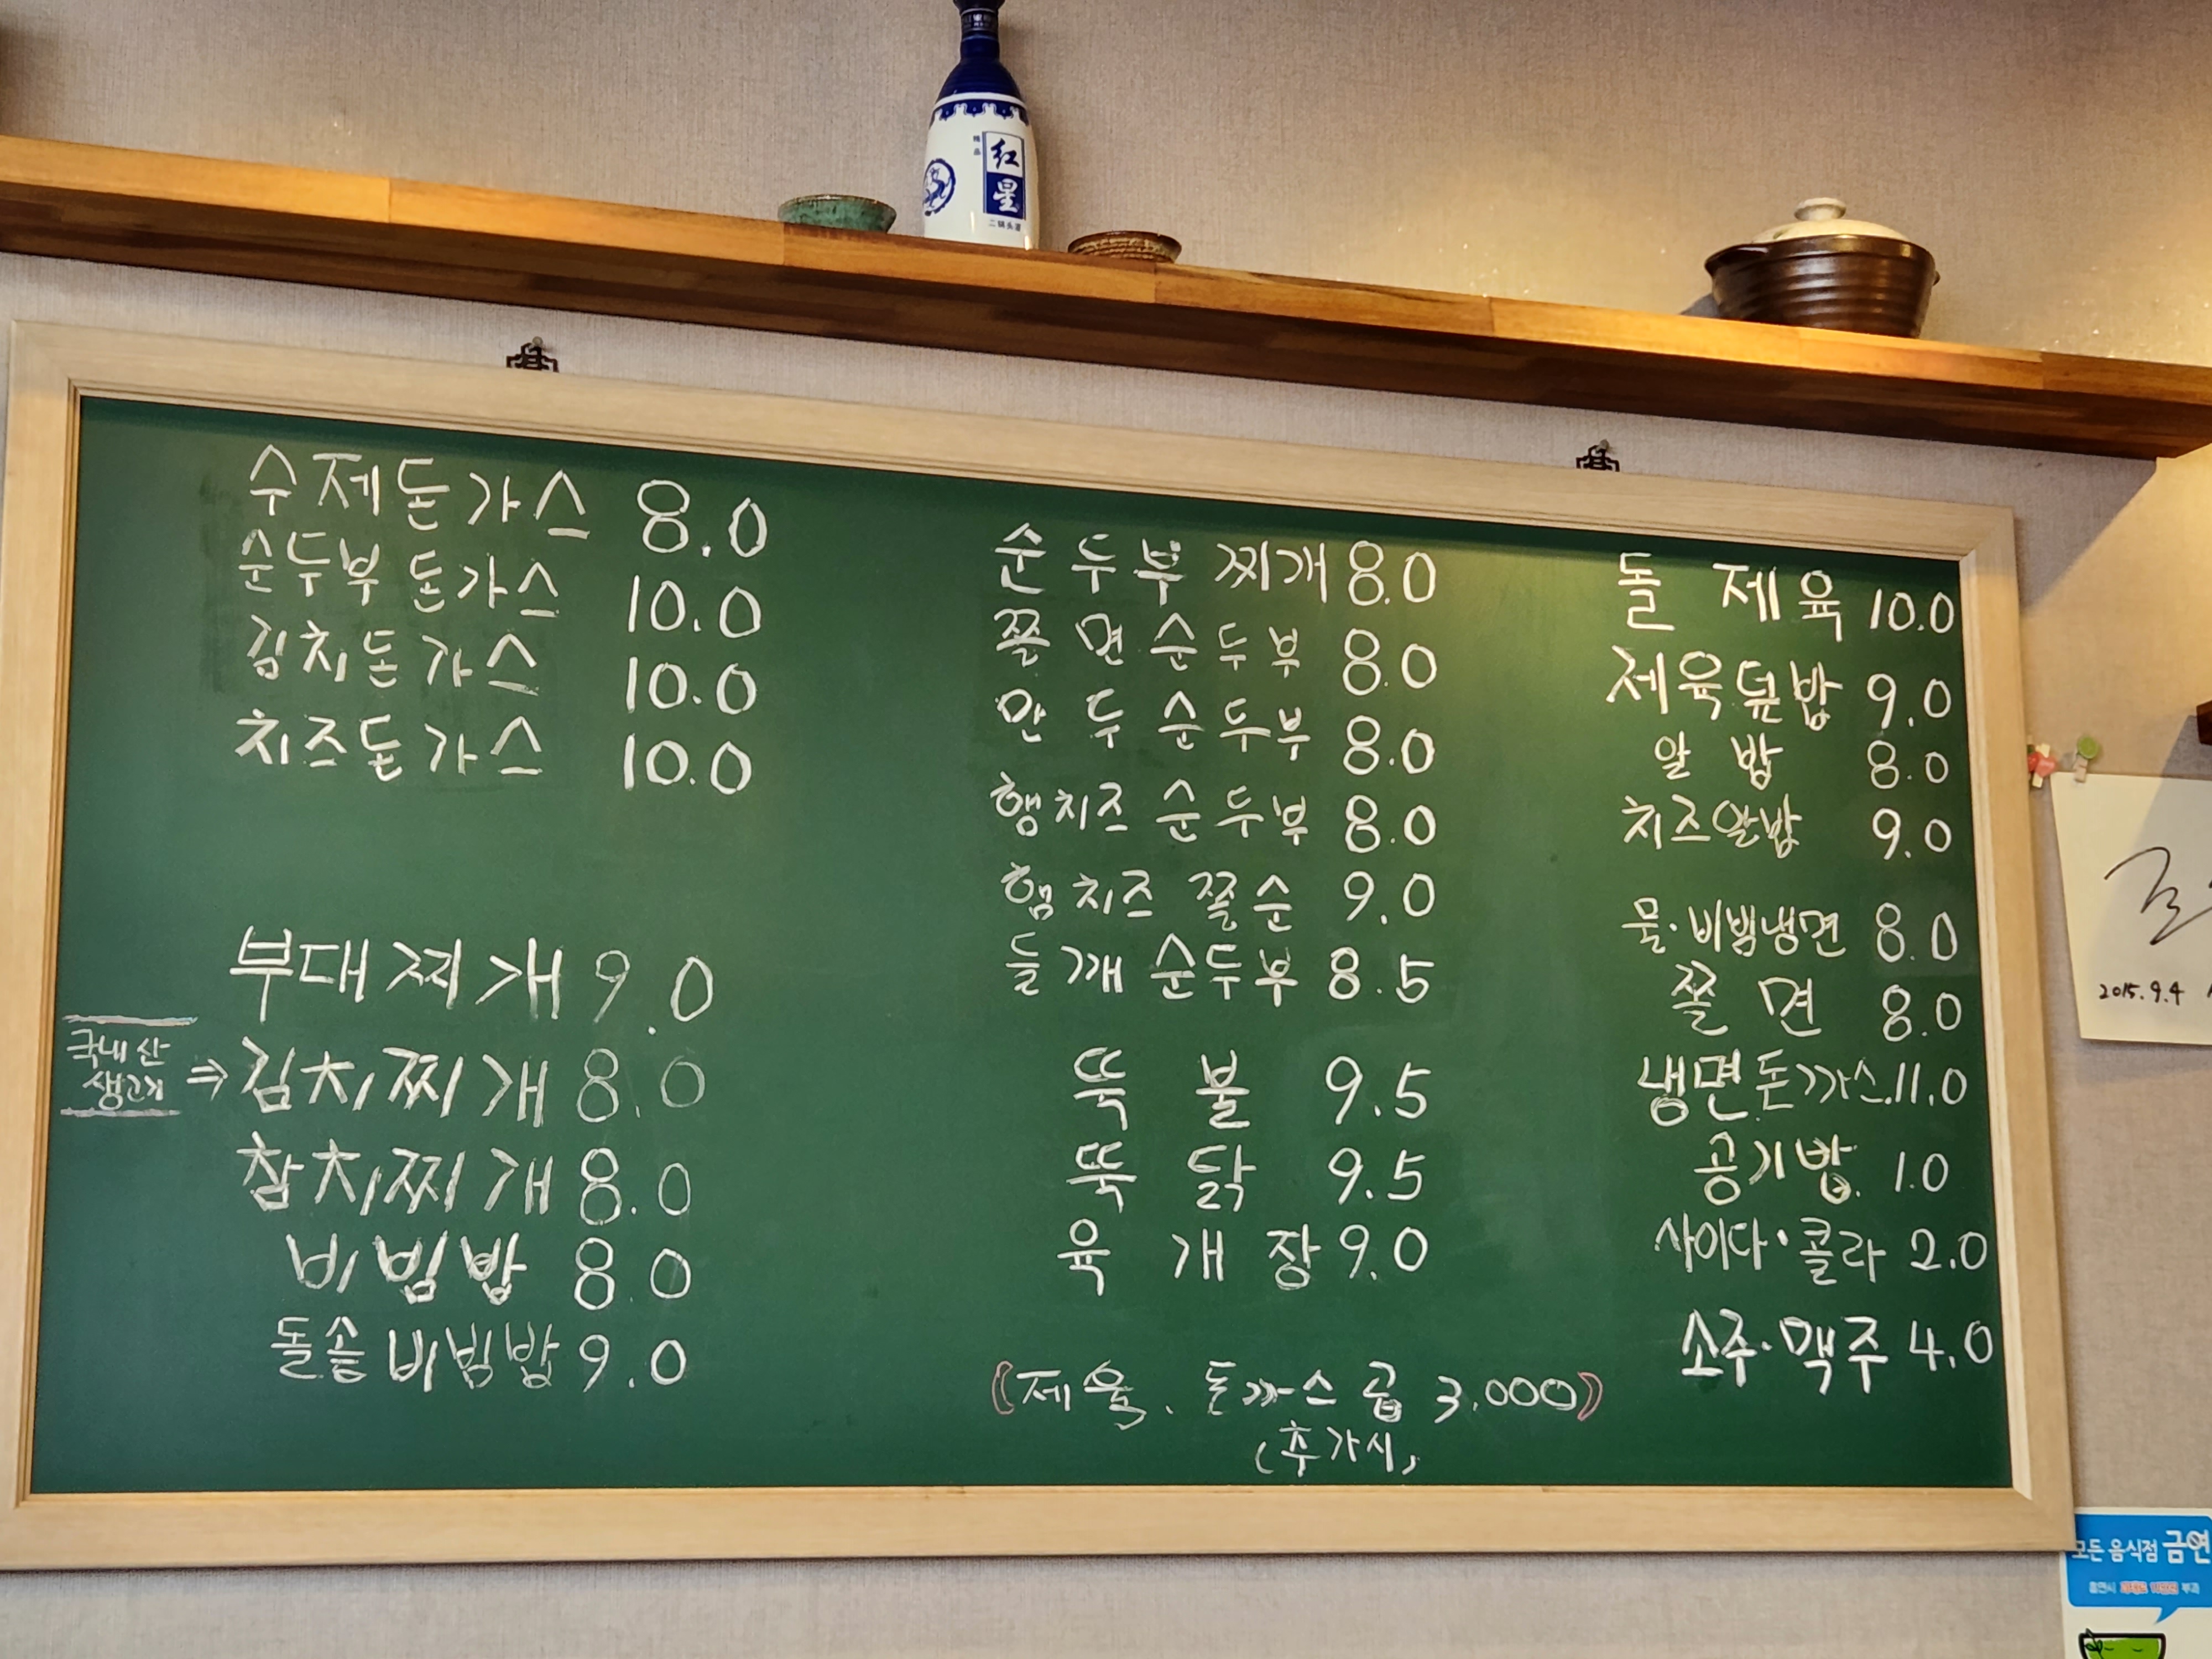 红星
二锅头酒
수제돈가스 8.0
순두부 돈가스 10.0
김치돈가스 10.0
치즈돈가스 10.0
부대찌개 9.0
국내산
생고기
⇒ 김치찌개 8.0
참치찌개 8.0
비빔밥 8.0
돌솥비빔밥 9.0
순두부 찌개 8.0
쫄면순두부 8.0
만두순두부 8.0
햄치즈 순두부 8.0
햄치즈 쫄순 9.0
들깨 순두부 8.5
뚝불 9.5
뚝닭 9.5
육개장 9.0
((제육. 돈까스 곱 3.000))
(추가시)
돌제육 10.0
제육덮밥 9.0
알밥 8.0
치즈알밥 9.0
물·비빔냉면 8.0
쫄면 8.0
냉면돈까스 11.0
공기밥 1.0
사이다·콜라 2.0
소주·맥주 4.0
2015.9.4
모든 음식점 금연